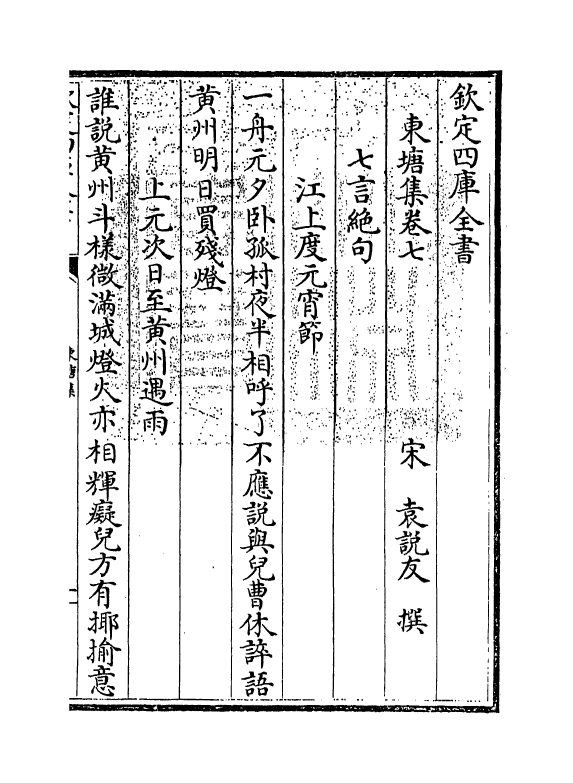 欽定四庫全書
東塘集卷七
宋 袁說友 撰
七言絶句
江上度元宵節
一舟元夕卧孤村夜半相呼了不應説與兒曹休誶語
黄州明日買殘燈
上元次日至黄州遇雨
誰説黄州斗様微滿城燈火亦相輝癡兒方有揶揄意
東塘集
一